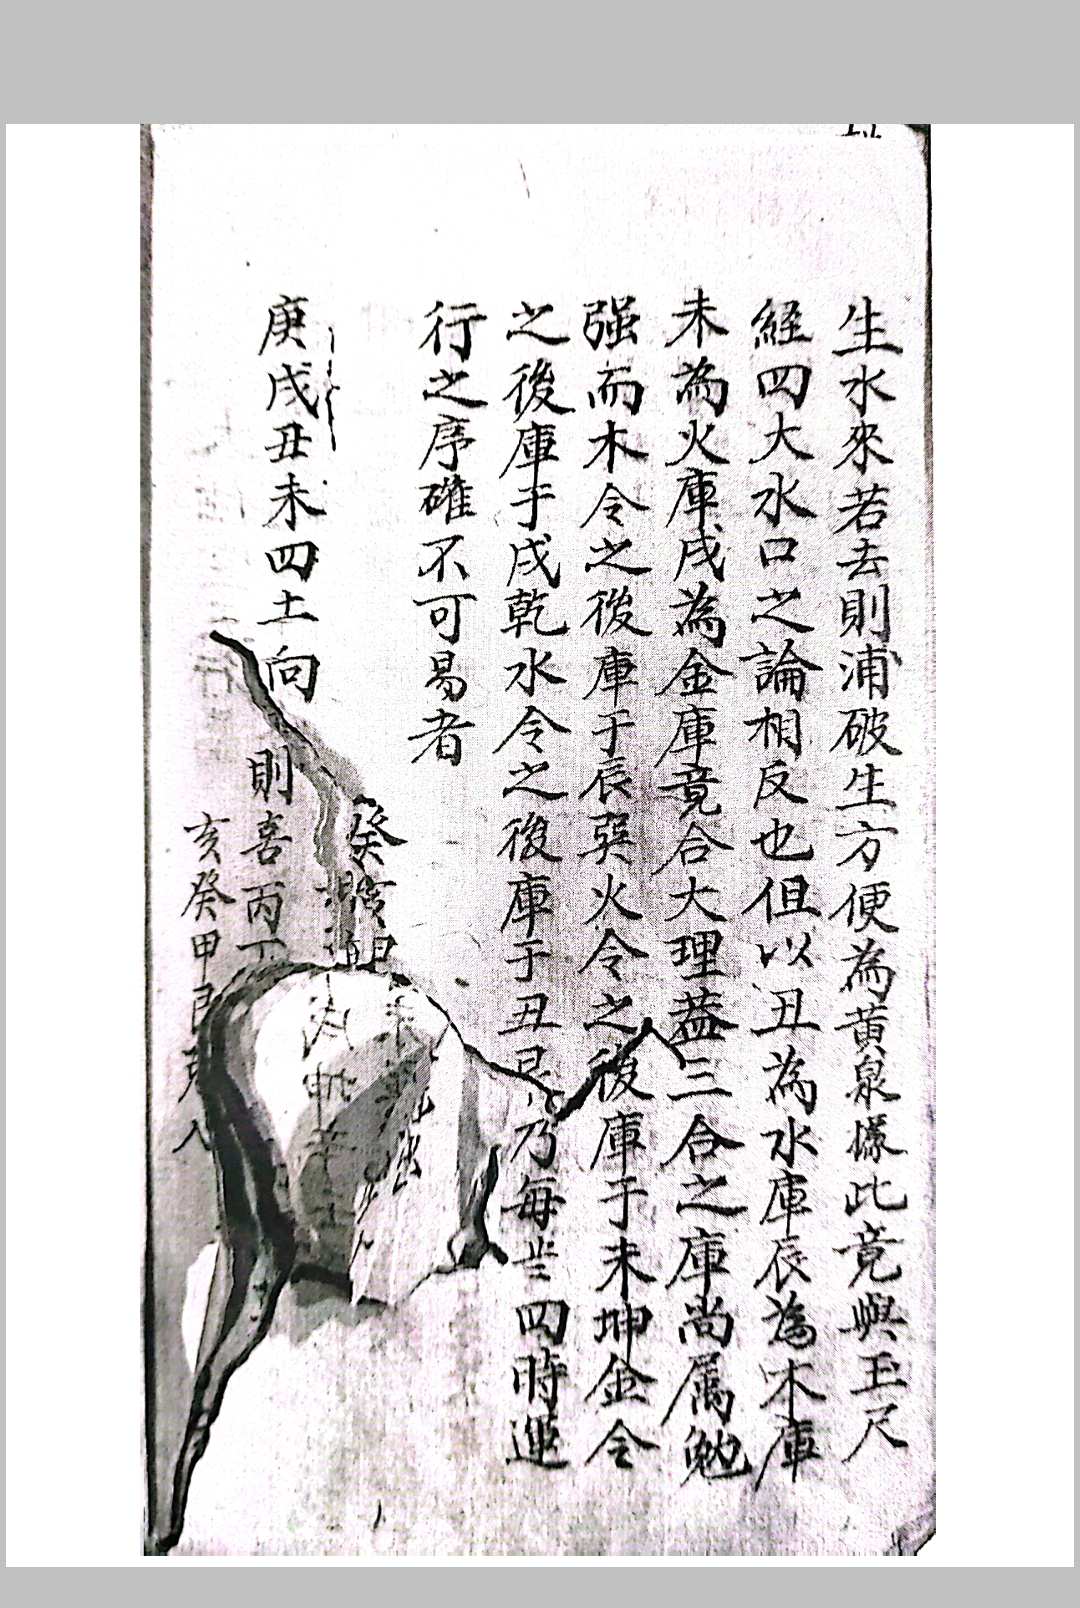 生水來若去則浦破生方便為黃泉據此竟與玉尺
經四大水口之論相反也但以丑為水庫辰為木庫
未為火庫戌為金庫竟合大理蓋三合之庫尚属勉
强而木令之後庫于辰巽火令之後庫于未坤金令
之後庫于戌乾水令之後庫于丑艮乃每歲四時運
行之序確不可易者
庚戌丑未四土向
癸
則喜丙丁
亥癸甲